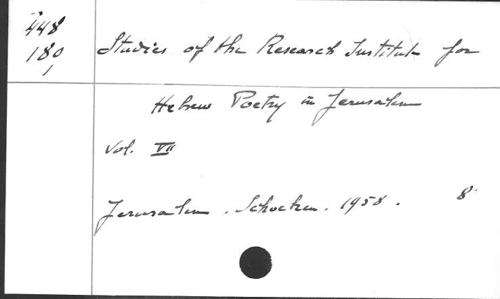 448
180
1
Studies of the Research Institute for
Hebrew Poetry in Jerusalem
Vol. VII
Jerusalem. Schocken. 1958. 8°